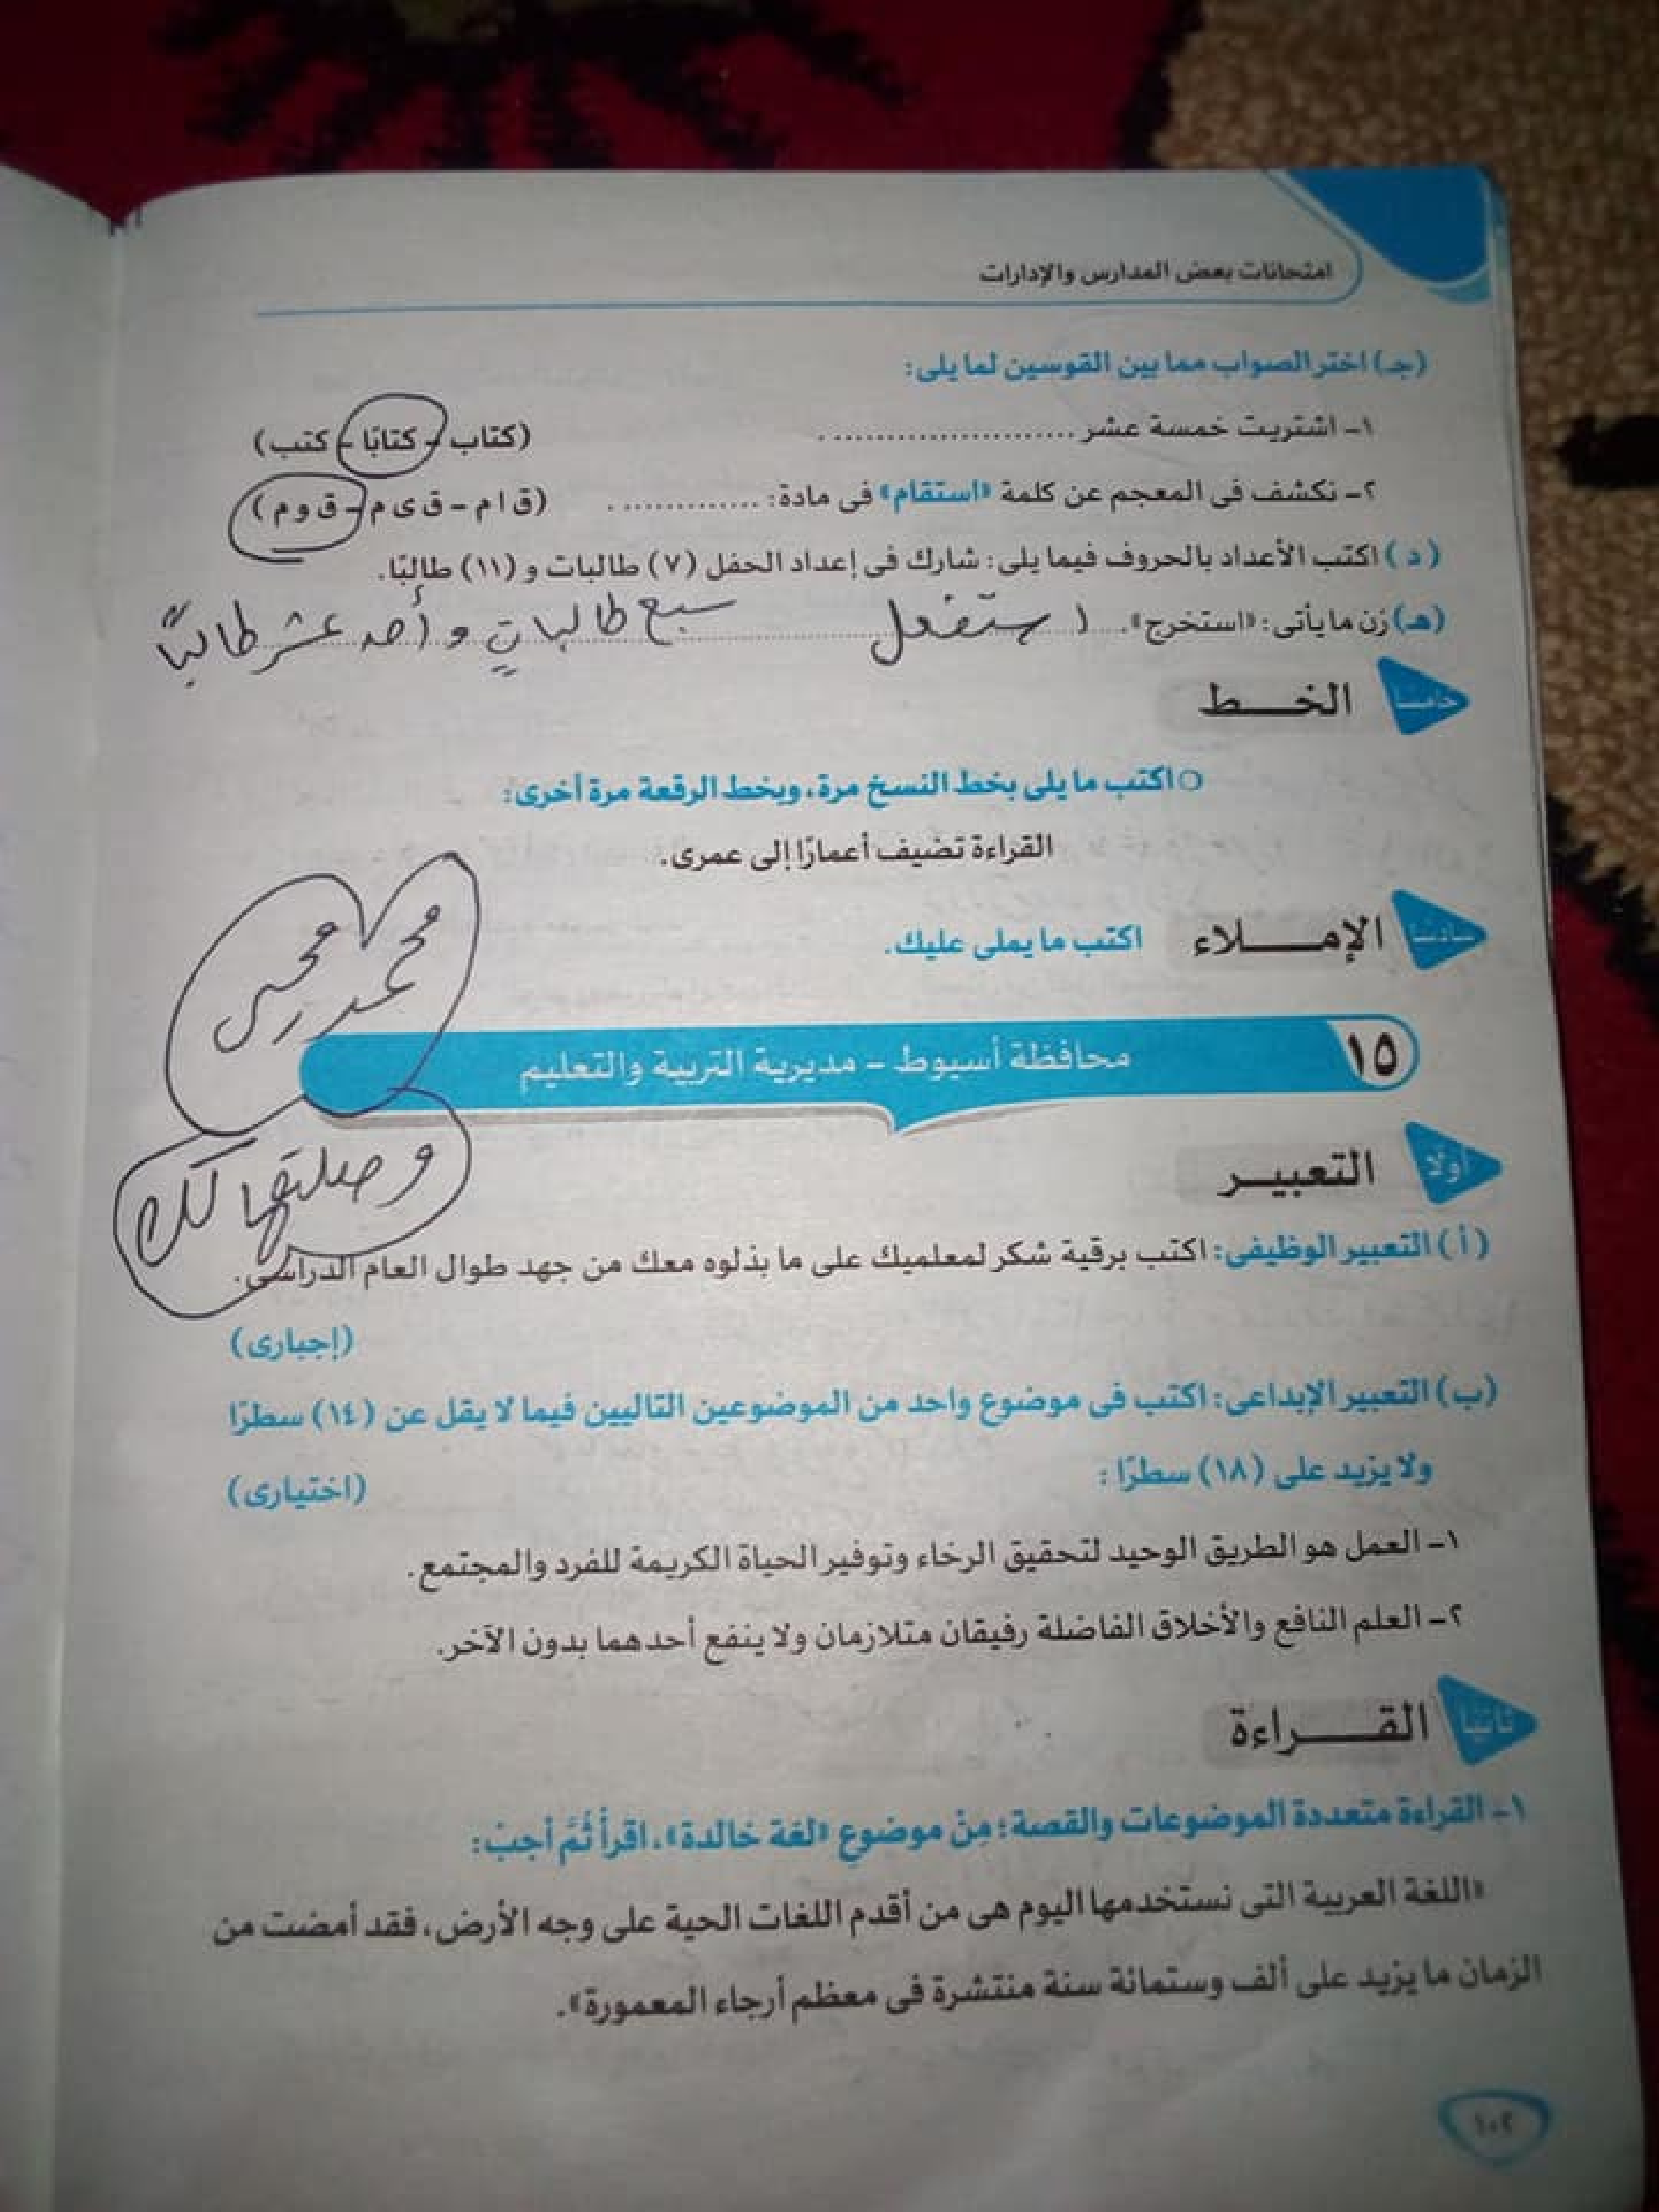 امتحانات بعض المدارس والإدارات
(جـ) اختر الصواب مما بين القوسين لما يلى:
١- اشتريت خمسة عشر ........................ . (كتاب - كتابًا - كتب)
٢- نكشف فى المعجم عن كلمة «استقام» فى مادة: .............. . (ق ا م - ق ى م - ق و م)
(د) اكتب الأعداد بالحروف فيما يلى: شارك فى إعداد الحفل (٧) طالبات و (١١) طالبًا.
(هـ) زن ما يأتى: «استخرج». استفعل سبع طالباتٍ و أحد عشر طالبًا
خامسًا الخـــط
اكتب ما يلى بخط النسخ مرة، وبخط الرقعة مرة أخرى:
القراءة تضيف أعمارًا إلى عمرى.
سادسًا الإمـــلاء اكتب ما يملى عليك.
محمد محى
١٥ محافظة أسيوط - مديرية التربية والتعليم
أولًا التعبيـر
لك
(أ) التعبير الوظيفى: اكتب برقية شكر لمعلميك على ما بذلوه معك من جهد طوال العام الدراسى.
(إجبارى)
(ب) التعبير الإبداعى: اكتب فى موضوع واحد من الموضوعين التاليين فيما لا يقل عن (١٤) سطرًا
ولا يزيد على (١٨) سطرًا : (اختيارى)
١- العمل هو الطريق الوحيد لتحقيق الرخاء وتوفير الحياة الكريمة للفرد والمجتمع.
٢- العلم النافع والأخلاق الفاضلة رفيقان متلازمان ولا ينفع أحدهما بدون الآخر.
ثانيًا القـــراءة
١- القراءة متعددة الموضوعات والقصة؛ مِنْ موضوع «لغة خالدة»، اقرأْ ثُمَّ أجبْ:
«اللغة العربية التى نستخدمها اليوم هى من أقدم اللغات الحية على وجه الأرض، فقد أمضت من
الزمان ما يزيد على ألف وستمائة سنة منتشرة فى معظم أرجاء المعمورة».
١٠٢